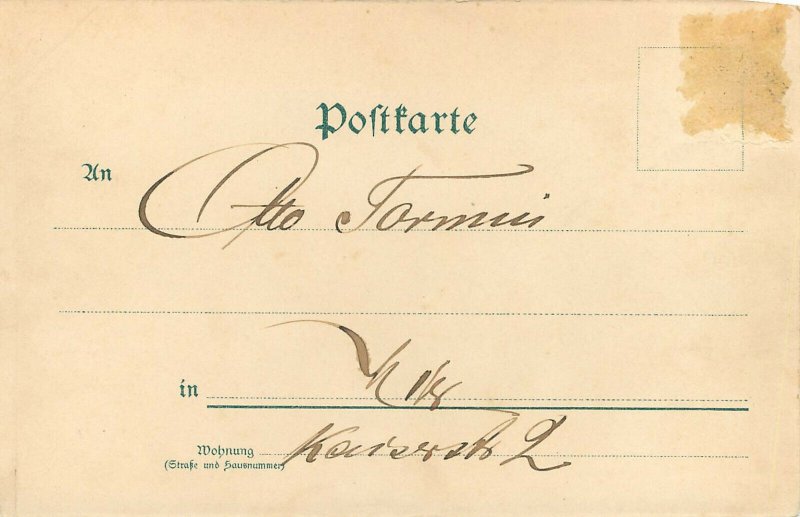 Postkarte
An Otto Tormin
in
Wohnung Kaiserstr 2
(Straße und Hausnummer)